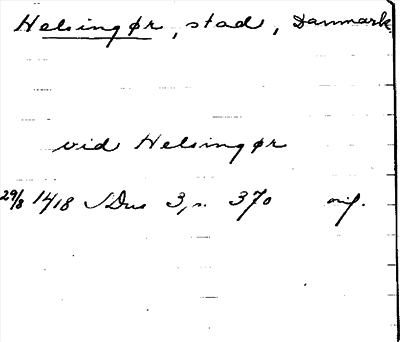 Helsingør, stad, Danmark
vid Helsingør
29/8 1418 SDns 3, s. 370 orig.